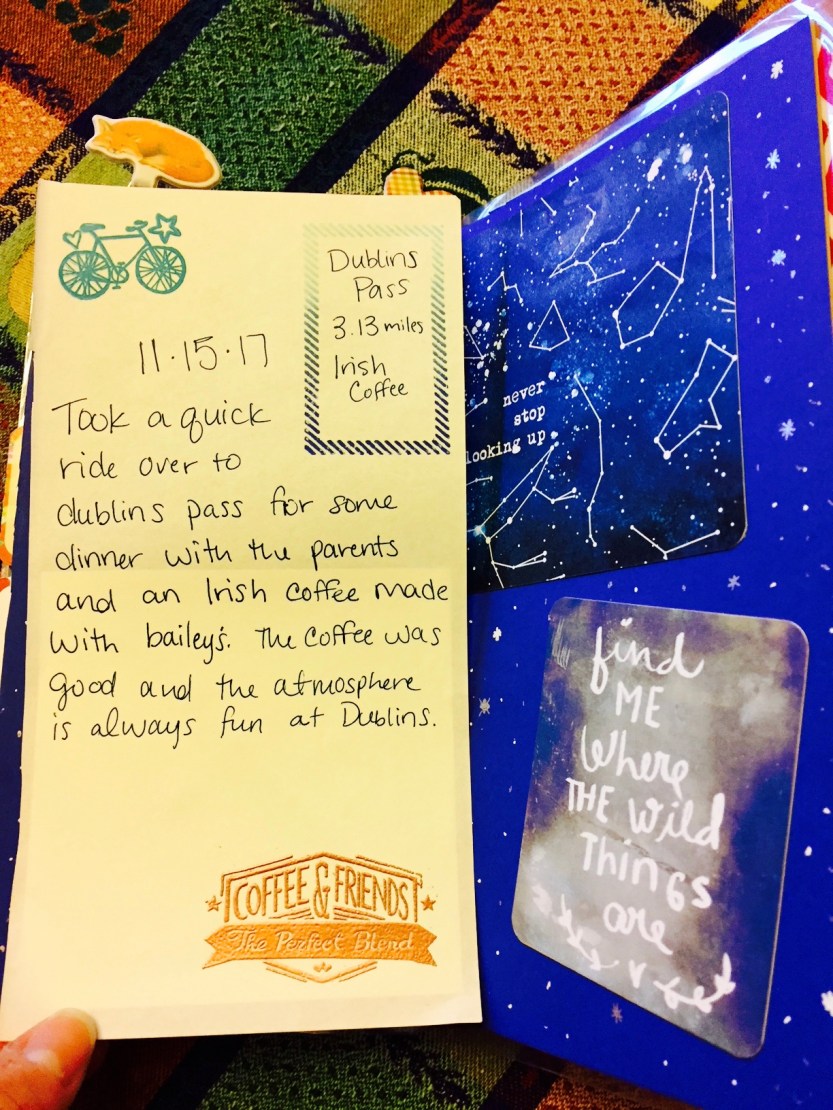 Dublins
Pass
3.13 miles
Irish
Coffee
11.15.17
Took a quick
ride over to
dublins pass for some
dinner with the parents
and an Irish coffee made
with bailey's. The coffee was
good and the atmosphere
is always fun at Dublins.
COFFEE & FRIENDS
The Perfect Blend
never
stop
looking up
find
ME
Where
THE Wild
THINGS
are